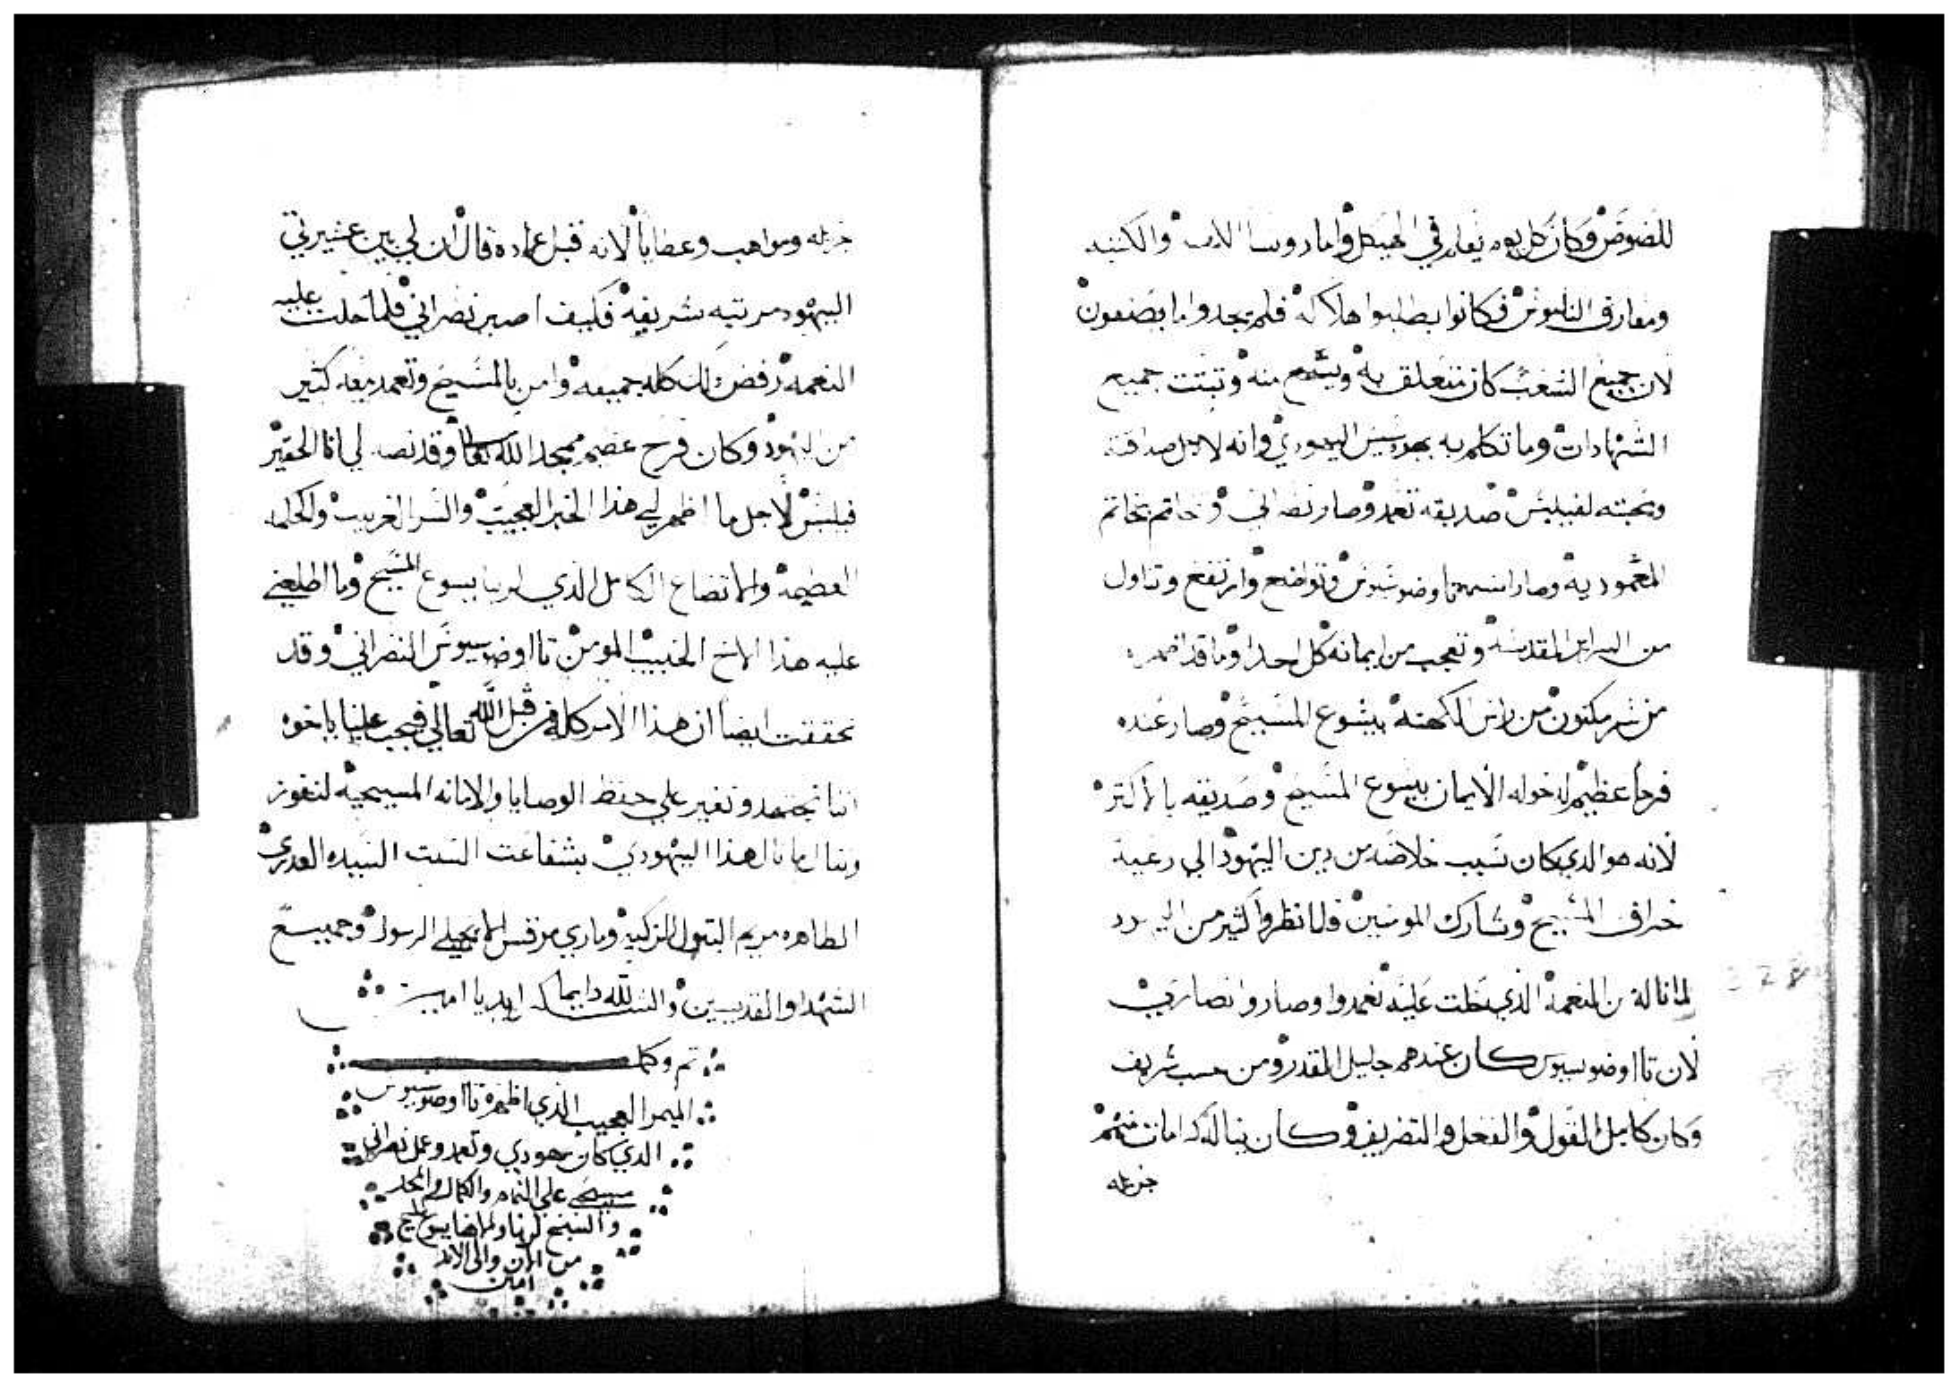 للصوص وكان كل يوم يعلم في الهيكل واما روسا الكهنه والكتبه
ومفارق الناموس فكانوا يطلبوا هلاكه فلم يجدوا ما يصنعون
لان جميع الشعب كان متعلق به ويسمع منه وتبتت جميع
الشهادات وما تكلم به اليهودي وانه لاجل صداقته
ومحبته لفيلبس صديقه تعمد وصار نصراني وخاتم بخاتم
المعموديه وصار اسمه تااوضوسيوس وتواضع وارتفع وتناول
من السراير المقدسه وتعجب من ايمانه كل احدا وما قد اضمره
من سر مكتون من راس الكهنه بيشوع المسيح وصار عنده
فرحا عظيم لدخوله الايمان بيسوع المسيح وصديقه بالاكتر
لانه هو الدي كان سبب خلاصه من دين اليهود الي رعية
خراف المسيح وشارك المومنين فلما نظروا كثير من اليهود
لما ناله من النعمة الذي حلت عليه تعمدوا وصاروا نصاري
لان تااوضوسيوس كان عندهم جليل المقدر ومن حسب شريف
وكان كامل القول والفعل والتصريف وكان يناله كرامات منهم
جزيله
جزيله ومواهب وعطايا لانه قبل عماده قال ان لي بين عشيرتي
اليهود مرتبه شريفه فكيف اصير نصراني فلما حلت عليه
النعمه رفض دلك كله جميعه وامن بالمسيح وتعمد معه كثير
من اليهود وكان فرح عضيم ممجدا الله تعالى وقد نصه لي انا الحقير
فيلبس لاجل ما اظهر لي هذا الخبر العجيب والسر الغريب والحكمه
العظيمة والاتضاع الكامل الذي لربنا يسوع المسيح وما اطلعني
عليه هذا الاخ الحبيب المومن تااوضوسيوس النصراني وقد
تحققت ايضا ان هذا الامر كله من قبل الله تعالي فيجب علينا يا اخوه
اننا نجتهد ونغير علي حفظ الوصايا والامانه المسيحية لنفوز
وننال ما نال هذا اليهودي بشفاعت الست السيده العدري
الطاهره مريم البتول الزكيه وماري مرقس الانجيلي الرسول وجميع
الشهدا والقديسين والسبح لله دايما ابديا امين
تم وكمل
الميمر العجيب الذي اظهره تااوضوسيوس
الدي كان يهودي وتعمد وعمل نصراني
مسيحي علي التمام والكمال والمجد
والسبح لربنا والاهنا يسوع المسيح
من الان والى الابد
امين